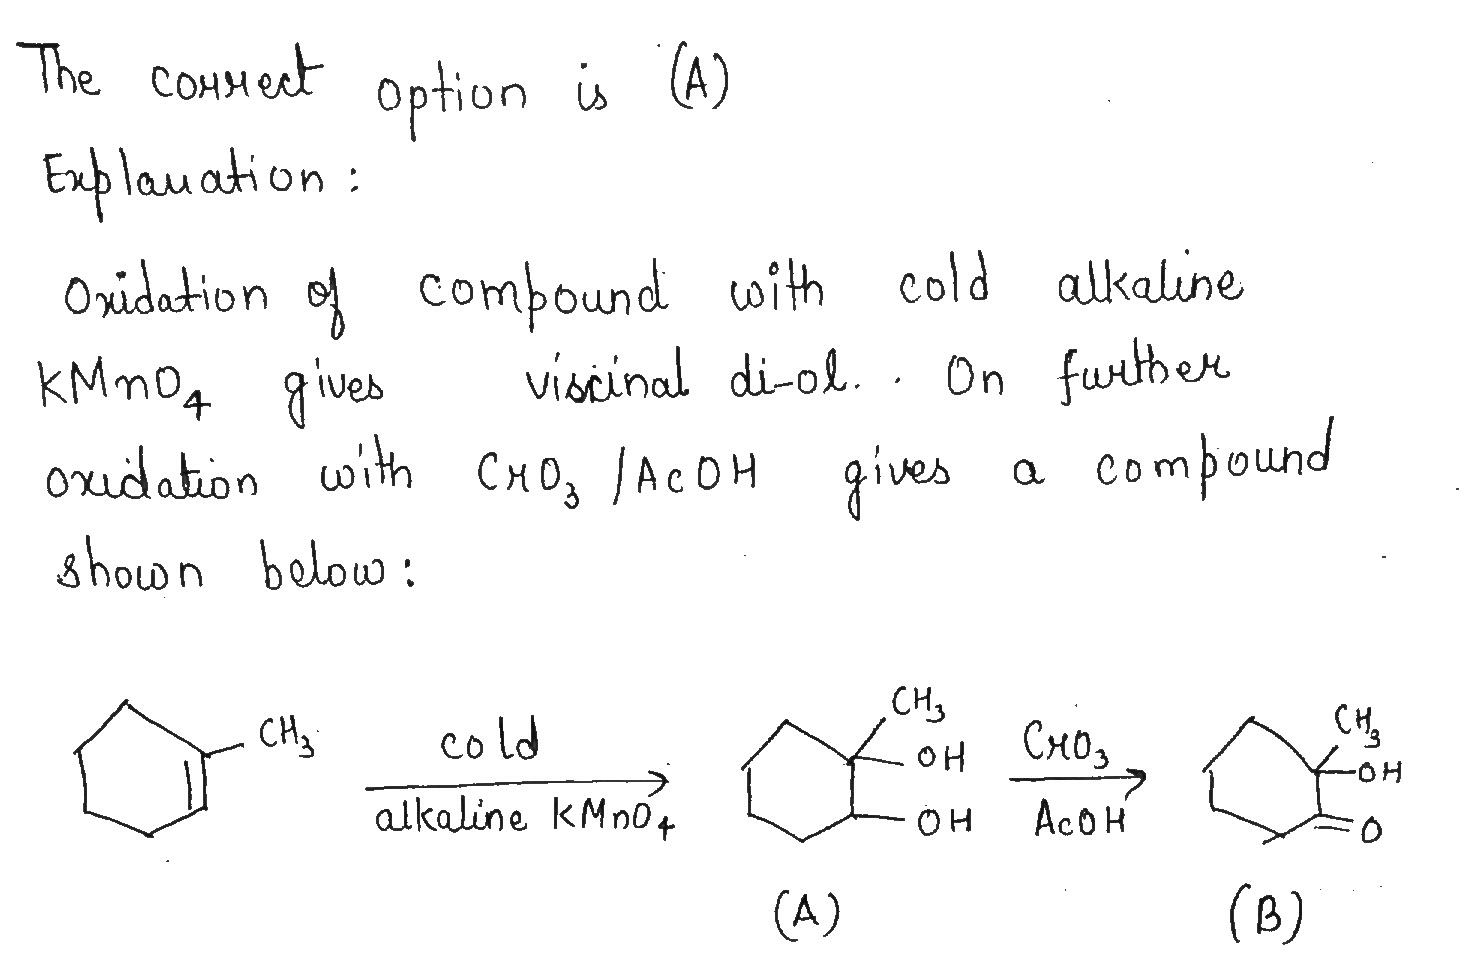 The correct option is (A)
Explanation:
Oxidation of compound with cold alkaline
KMnO4 gives viscinal di-ol. On further
oxidation with CrO3 /AcOH gives a compound
shown below:
CH3 cold alkaline KMnO4 CH3 OH OH CrO3 AcOH CH3 OH O
(A) (B)